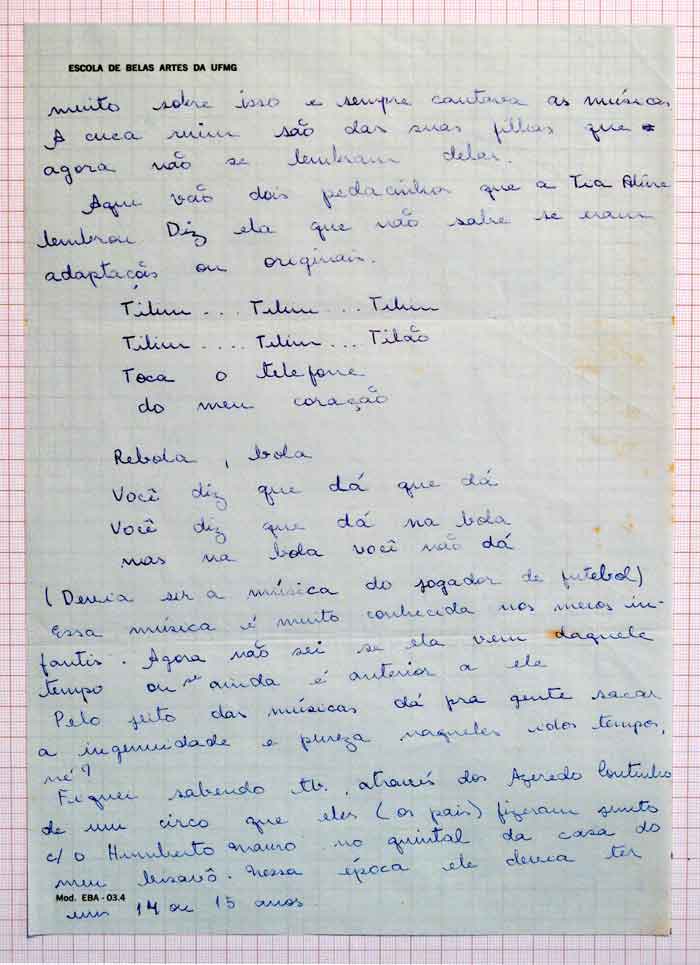 ESCOLA DE BELAS ARTES DA UFMG
muito sobre isso e sempre cantava as músicas
A cuca ruim são das suas filhas que
agora não se lembram delas.
Aqui vão dois pedacinhos que a Tia Aline
lembrou. Diz ela que não sabe se eram
adaptaçãs ou originais.
Tilim ... Tilim ... Tilim
Tilim .... Tilim ... Tilão
Toca o telefone
do meu coração
Rebola, bola
Você diz que dá que dá
Você diz que dá na bola
mas na bola você não dá
(Devia ser a música do jogador de futebol)
Essa música é muito conhecida nos meios in-
fantis. Agora não sei se ela vem daquele
tempo ou se ainda é anterior a ele
Pelo jeito das músicas dá pra gente sacar
a ingenuidade e pureza naqueles idos tempos,
né?
Fiquei sabendo tb. através dos Azeredo Coutinho
de um circo que eles (os pais) fizeram junto
c/ o Humberto Mauro no quintal da casa do
meu bisavô. Nessa época ele devia ter
uns 14 ou 15 anos
Mod. EBA - 03.4